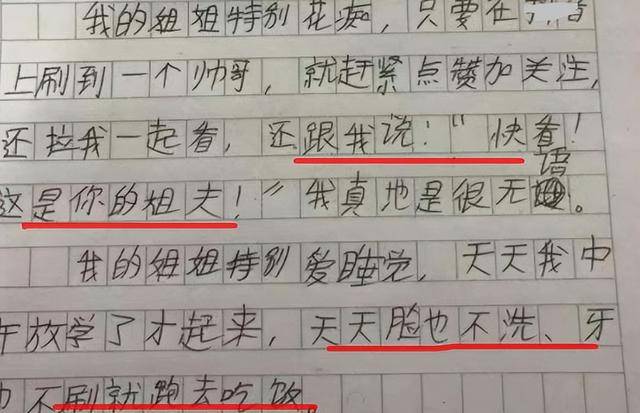 我的姐姐特别花痴，只要在抖音
上刷到一个帅哥，就赶紧点赞加关注，
还拉我一起看，还跟我说：“快看！
这是你的姐夫！”我真地是很无语。
我的姐姐特别爱睡觉，天天我中
午放学了才起来，天天脸也不洗、牙
也不刷就跑去吃饭